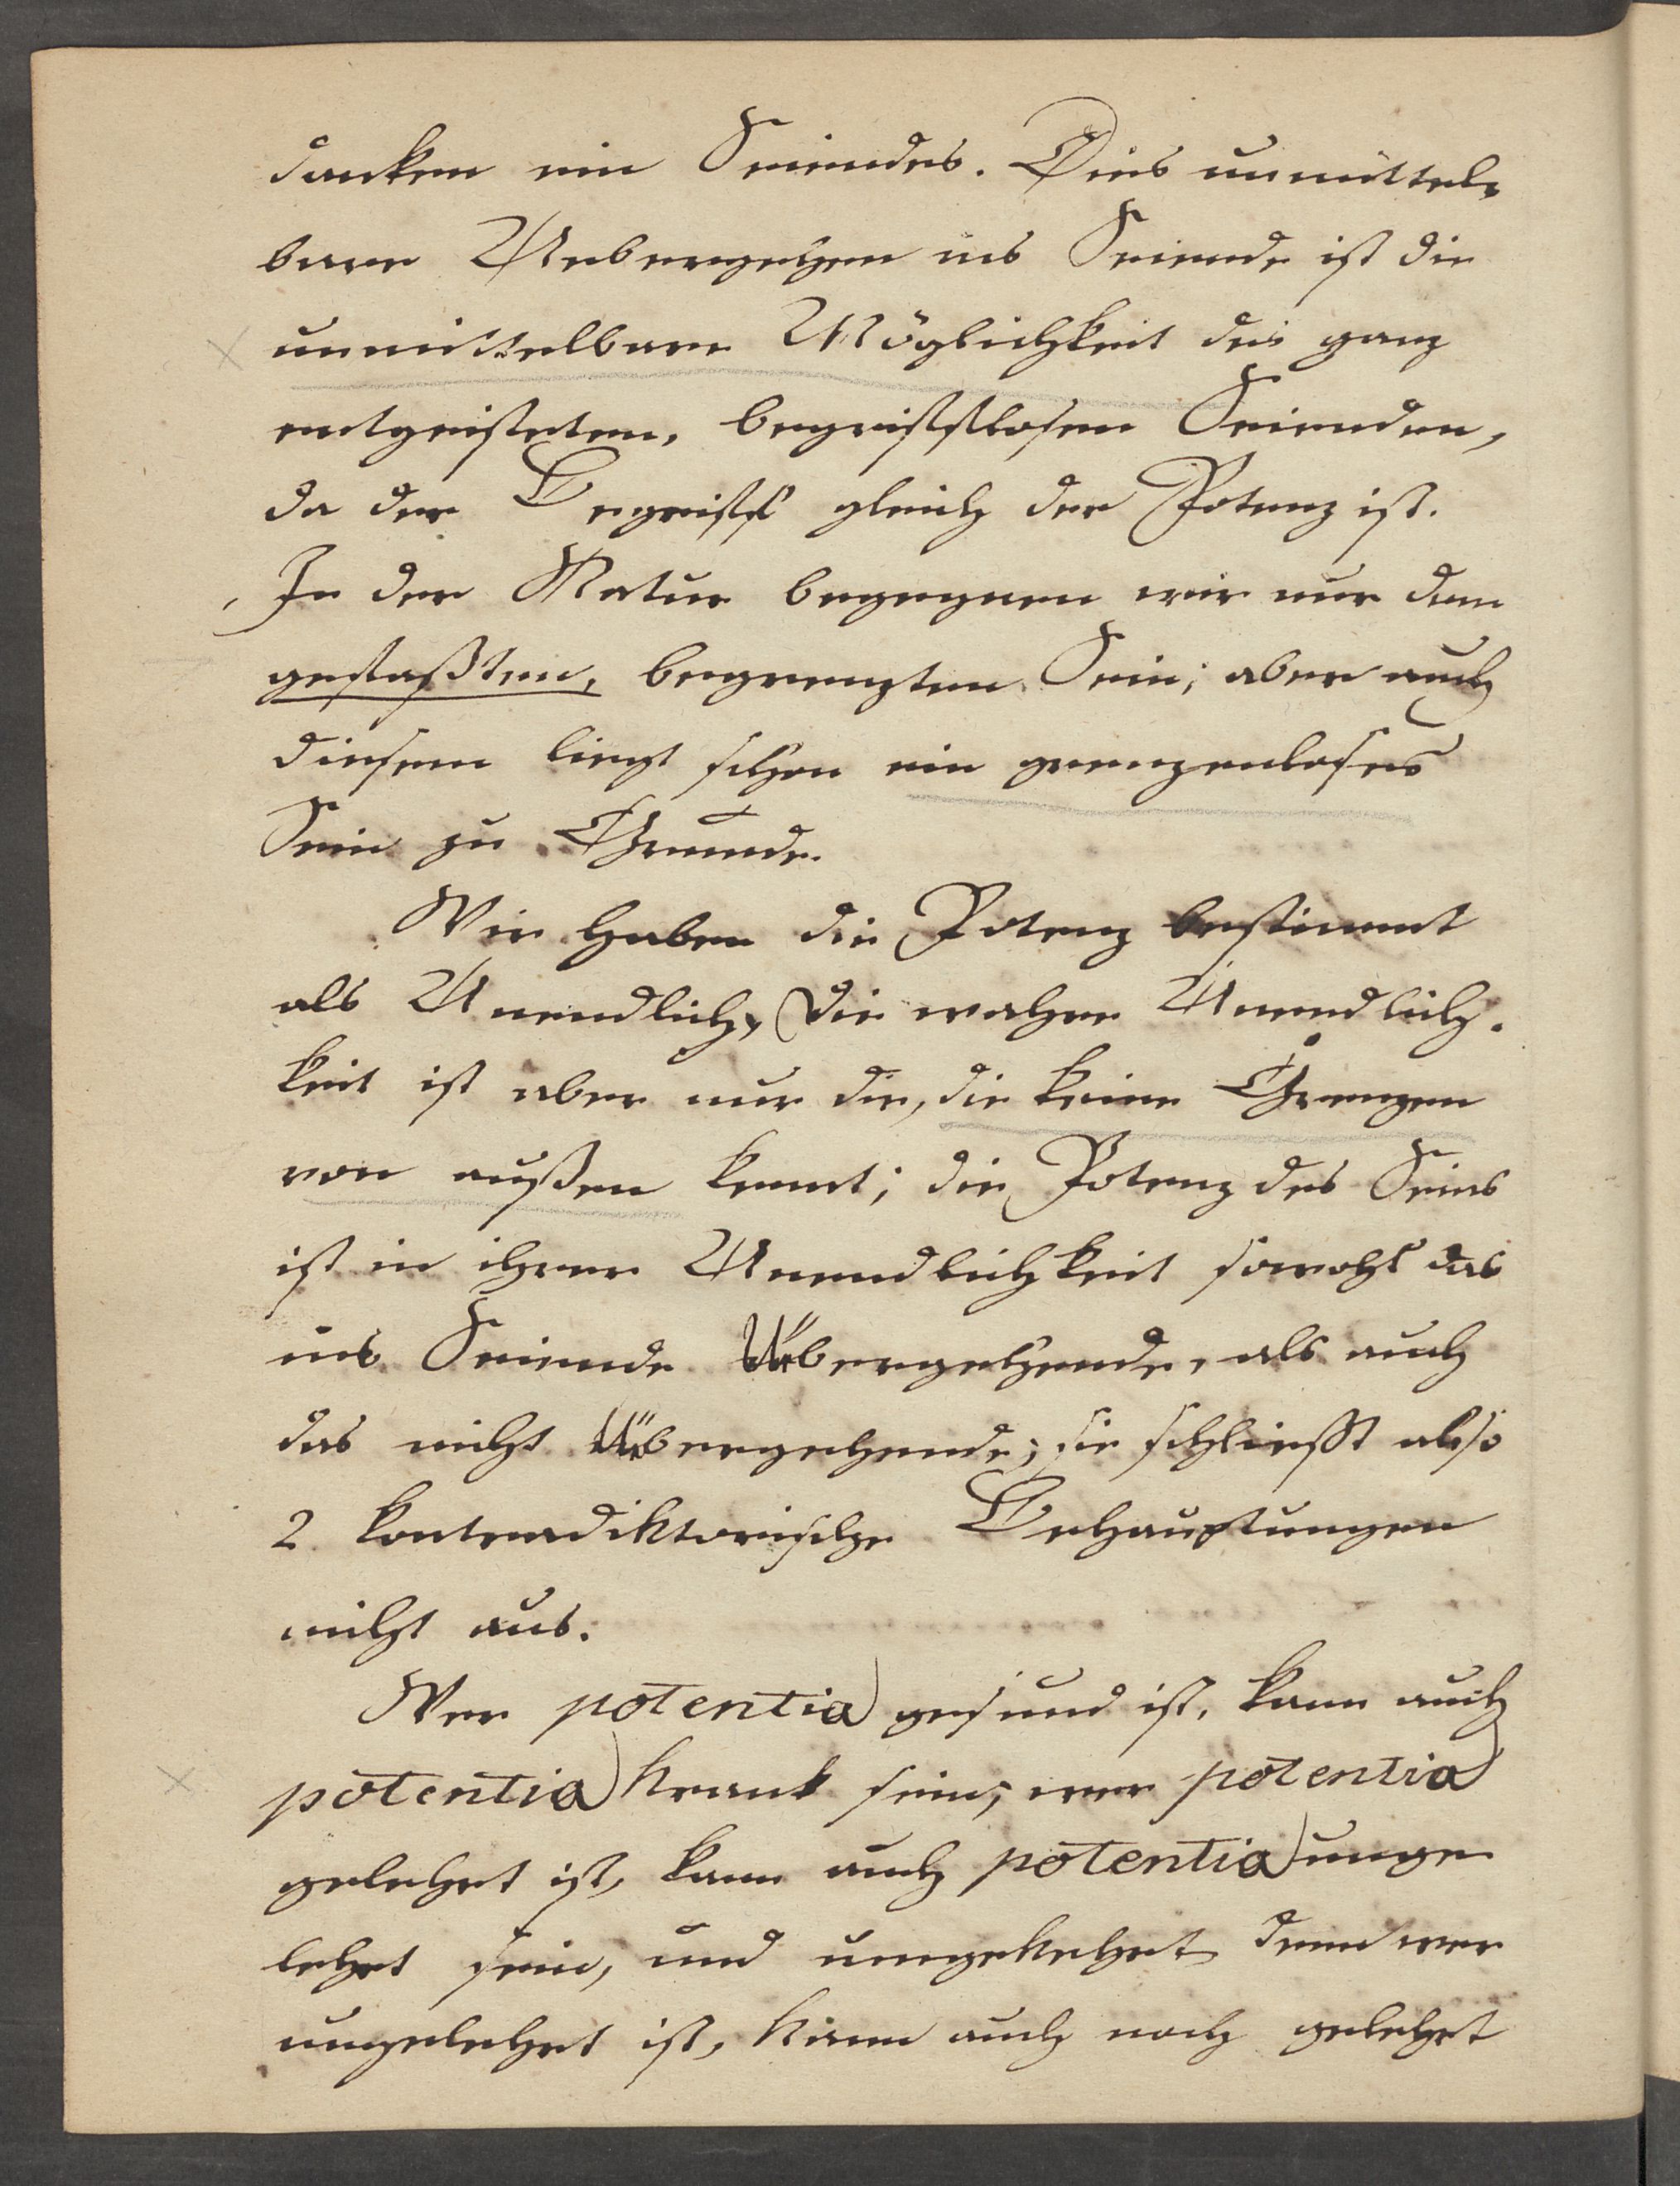 danken ein Seiendes. Dies unmittel-
bare Uebergehen ins Seiende ist die
unmittelbare Möglichkeit des ganz
entgeisteten, begriffslosen Seienden,
da der Begriff gleich der Potenz ist.
In der Natur begegnen wir nur dem
gefaßten, begrenzten Sein; aber auch
diesem liegt schon ein grenzenloses
Sein zu Grunde.
Wir haben die Potenz bestimmt
als Unendlich, die wahre Unendlich-
keit ist aber nur die, die keine Grenzen
von außen kennt; die Potenz des Seins
ist in ihrer Unendlichkeit sowohl das
ins Seiende Übergehende, als auch
das nicht Übergehende; sie schließt also
2 kontradiktorische Behauptungen
nicht aus.
Wer potentia gesund ist, kann auch
potentia krank sein; wer potentia
gelehrt ist, kann auch potentia unge
lehrt sein, und umgekehrt denn wer
ungelehrt ist, kann auch noch gelehrt